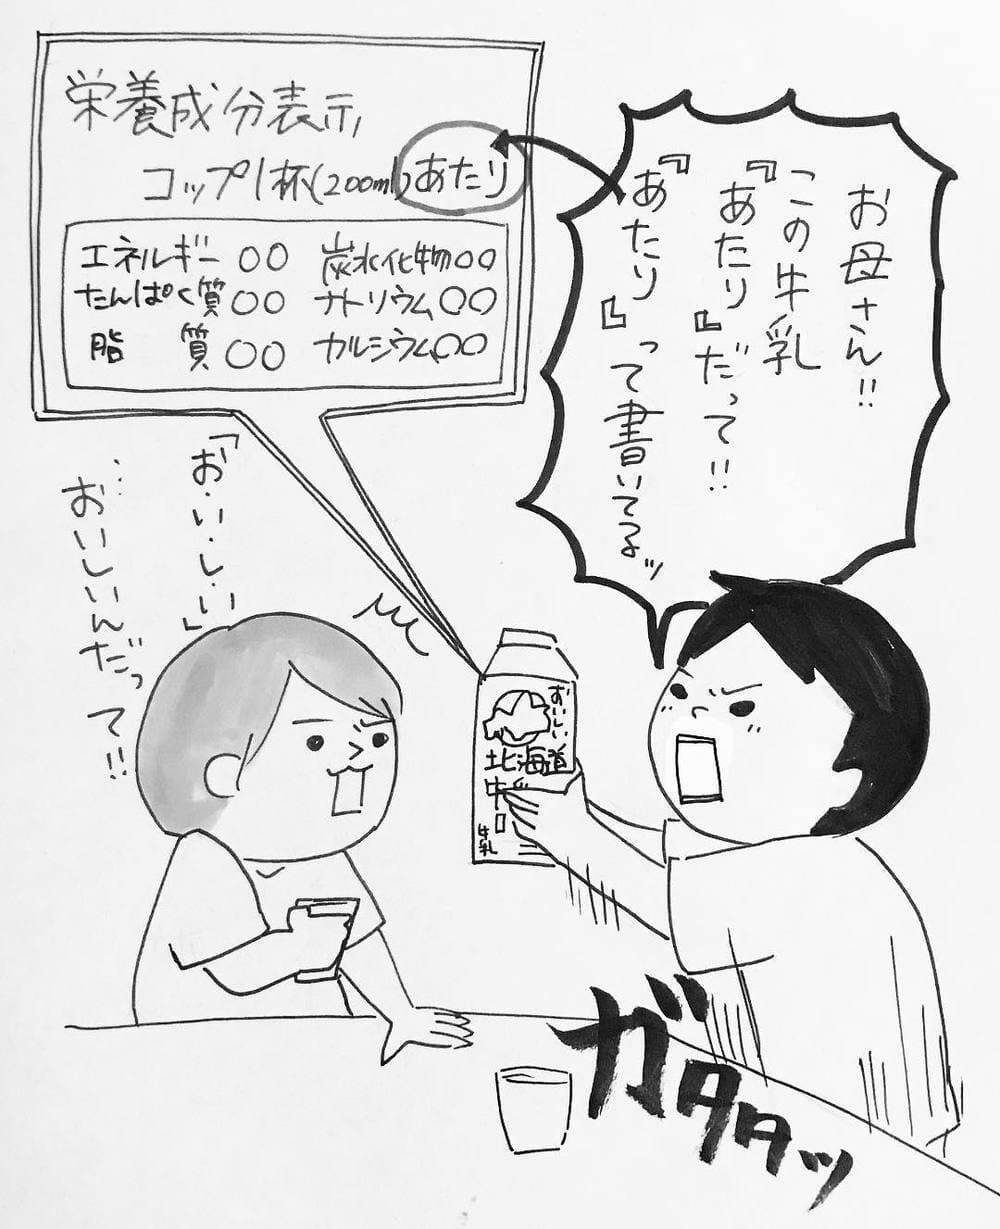 お母さん!!
この牛乳
『あたり』だって!!
『あたり』って書いてるッ
栄養成分表示
コップ1杯(200ml)あたり
エネルギー〇〇 炭水化物〇〇
たんぱく質〇〇 ナトリウム〇〇
脂 質〇〇 カルシウム〇〇
「お・い・し・い」
…おいしいんだって!!
おいしい
北海道
牛乳
ガタタッ